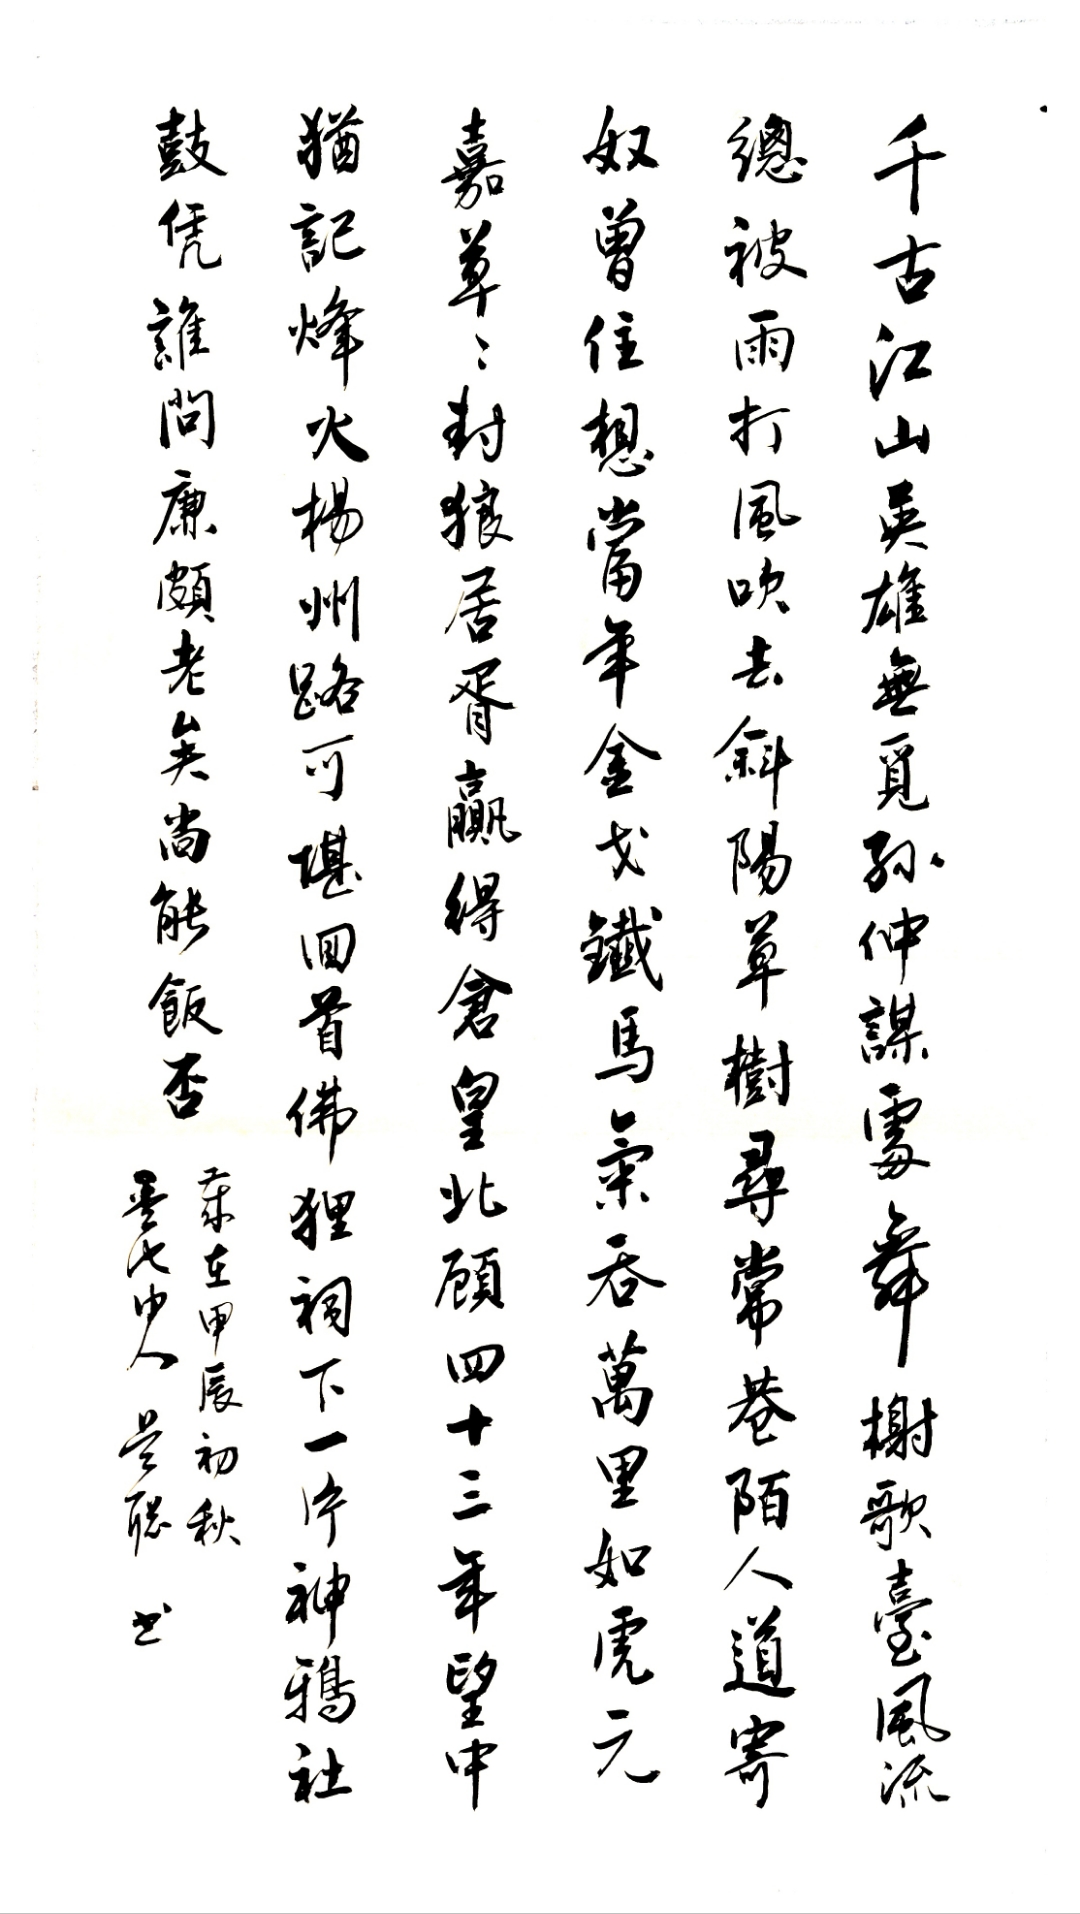 千古江山英雄無覓孫仲謀處舞榭歌臺風流
總被雨打風吹去斜陽草樹尋常巷陌人道寄
奴曾住想當年金戈鐵馬氣吞萬里如虎元
嘉草〻封狼居胥贏得倉皇北顧四十三年望中
猶記烽火楊州路可堪回首佛狸祠下一片神鴉社
鼓凭誰問廉頗老矣尚能飯否
歲在甲辰初秋
吳聰 书